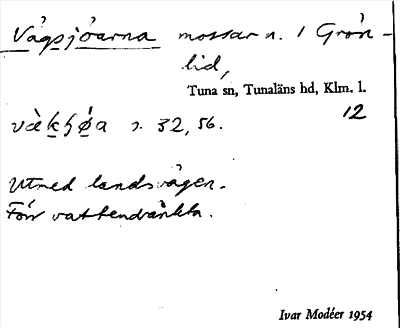 Vägsjöarna mossar n. 1 Grön-
lid,
Tuna sn, Tunaläns hd, Klm. l.
12
s. 32, 56.
Utmed landsvägen.
Förr vattendränkta.
Ivar Modéer 1954